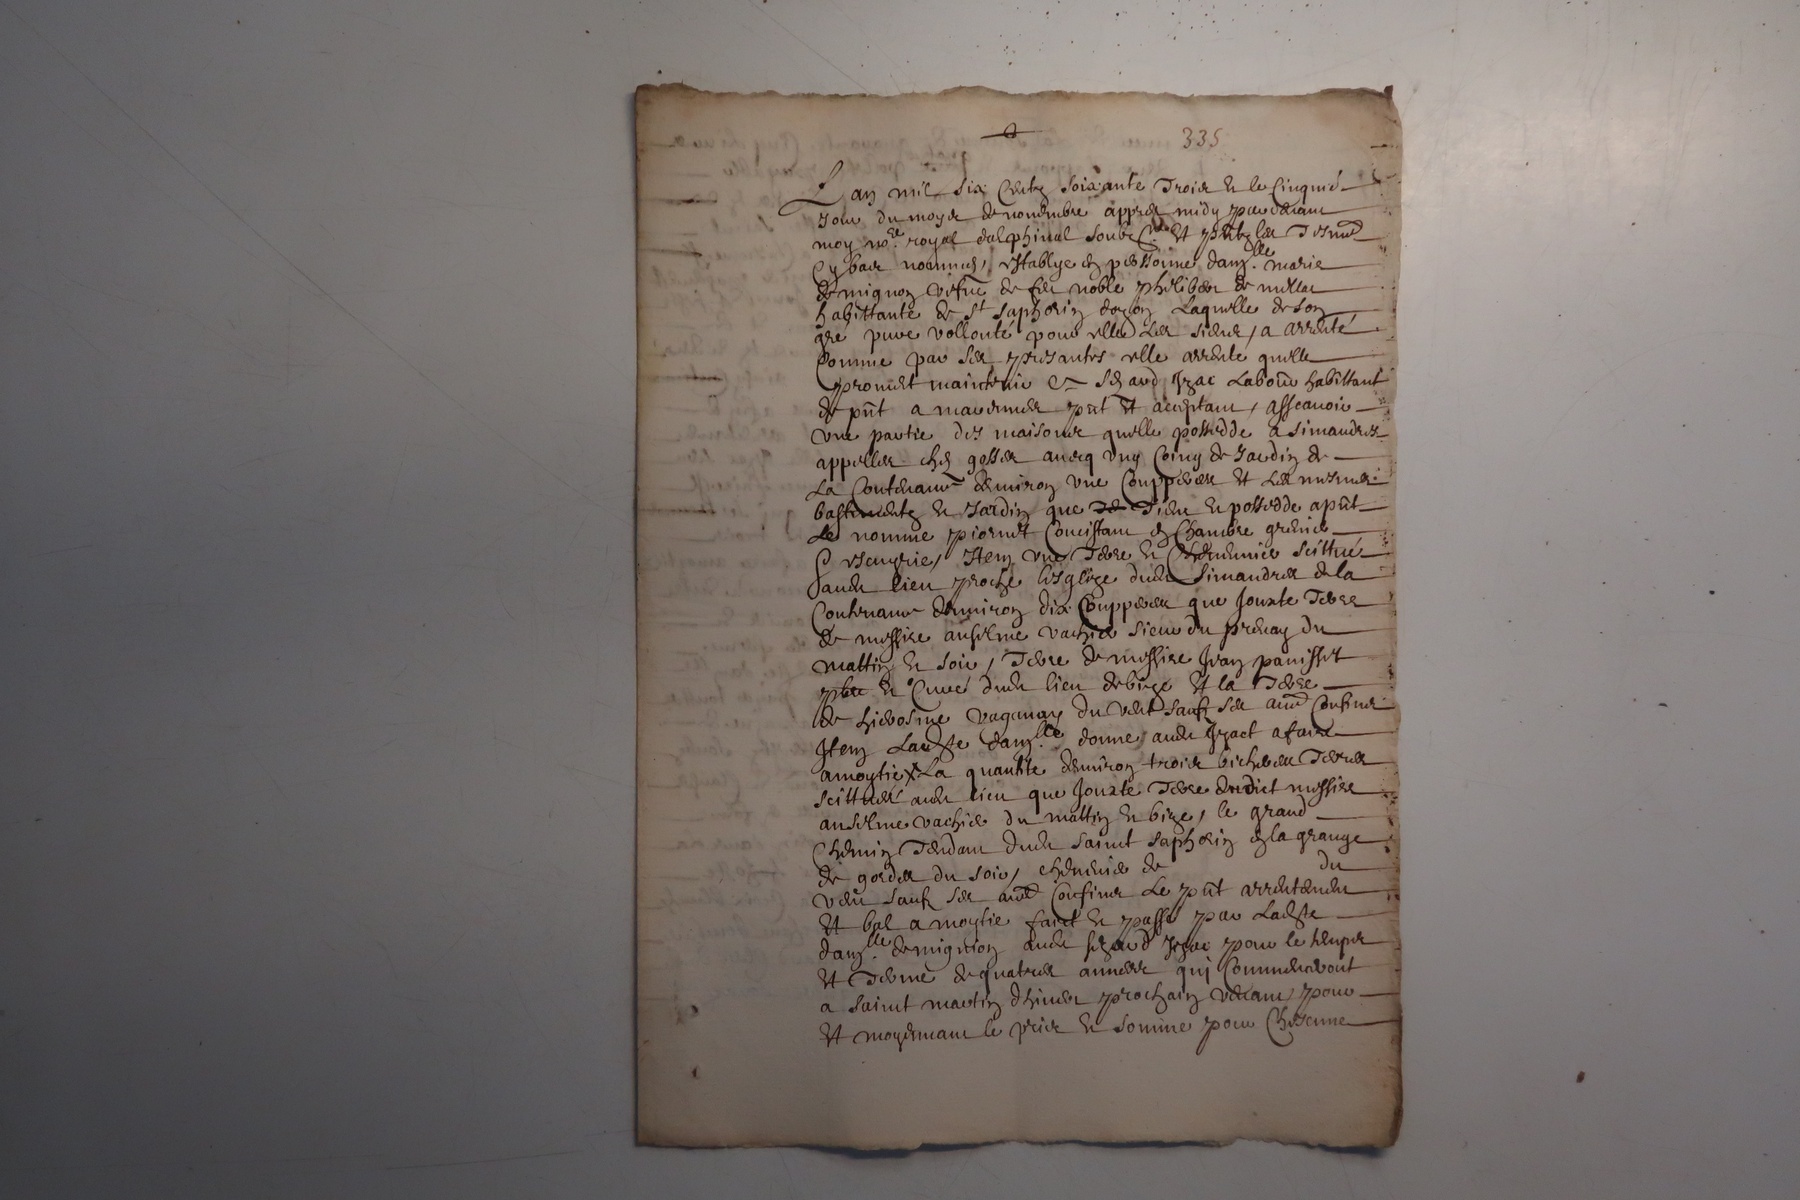 335
Lan mil six centz soixante trois et le cinquie
jour du moys de novembre appres midy par devant
moy nore royal dalphinal soubzne et pntz les tesmed
cy bas nommes, establye en personne damlle marie
de mignon vefve de feu noble philibert de
habittante de st saphorin dozon laquelle de son
gre pure vollonté pour elle les siens, a arrenté
comme par ses presantes elle arrente quelle
promet maintenir &c Izac habittant
de pnt a mareunes pnt et acceptant, asscavoir
une partie des maisons quelle possedde a simandres
appelles ches gosses avecq ung coing de jardin de
la contenance denviron une couppees et les mesmes
bastimentz et jardin que tient et possedde a pnt
le nomme piornet concistant en chambre grenier
escuyrie, Item une terre et chenevier scittué
audt lieu proche lesglize dudt simandres de la
contenance denviron dix couppees que jouxte terre
de messire anselme vachier sieur du du
mattin et soir, terre de messire Jean panisset
pbre et curé dudt lieu de bize et la terre
de hierosme vaganay du vent sauf ses aued confins
Item ladte damlle donne audt Izact a faire
a moytie la quantite denviron trois bicherees terres
scittuees audt lieu que jouxte terre dudict messire
anselme vachier du mattin et bize, le grand
chemin tendant dudt saint saphorin en la grange
de gordes du soir, chenevier de du
vent sauf ses aued confins le pnt arrentement
et bal a moytie faict et passe par ladte
damlle de mignion audt Izac pour le temps
et terme de quatres annees qui commenceront
a saint martin dhiver prochain venant, pour
et moyennant le prix et somme pour chesenne